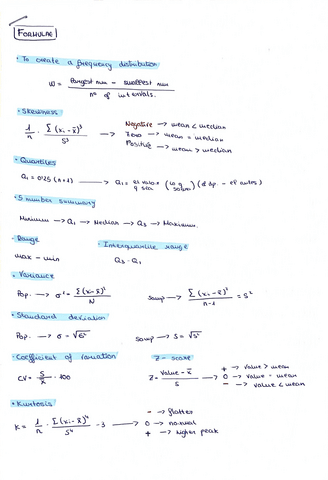 FORMULAE
· To create a frequency distribution
W = largest num - smallest num / nº of intervals.
· Skewness
1/n · Σ(xi - x̄)³ / S³ → Negative → mean < median
Zero → mean = median
Positive → mean > median
· Quantiles
Q1 = 0'25 (n+1) → Q1 =
· 5 number summary
Minimum → Q1 → Median → Q3 → Maximum.
· Range
· Interquartile range
max - min
Q3 - Q1
· Variance
Pop. → σ² = Σ(xi - x̄)² / N
Samp → Σ(xi - x̄)² / n-1 = S²
· Standard deviation
Pop. → σ = √σ²
Samp → S = √S²
· Coefficient of variation
Z - score
CV = S/x̄ · 100
Z = value - x̄ / S
+ → value > mean
0 → value = mean
- → value < mean
· Kurtosis
K = 1/n · Σ(xi - x̄)⁴ / S⁴ - 3 → - → flatter
0 → normal
+ → higher peak